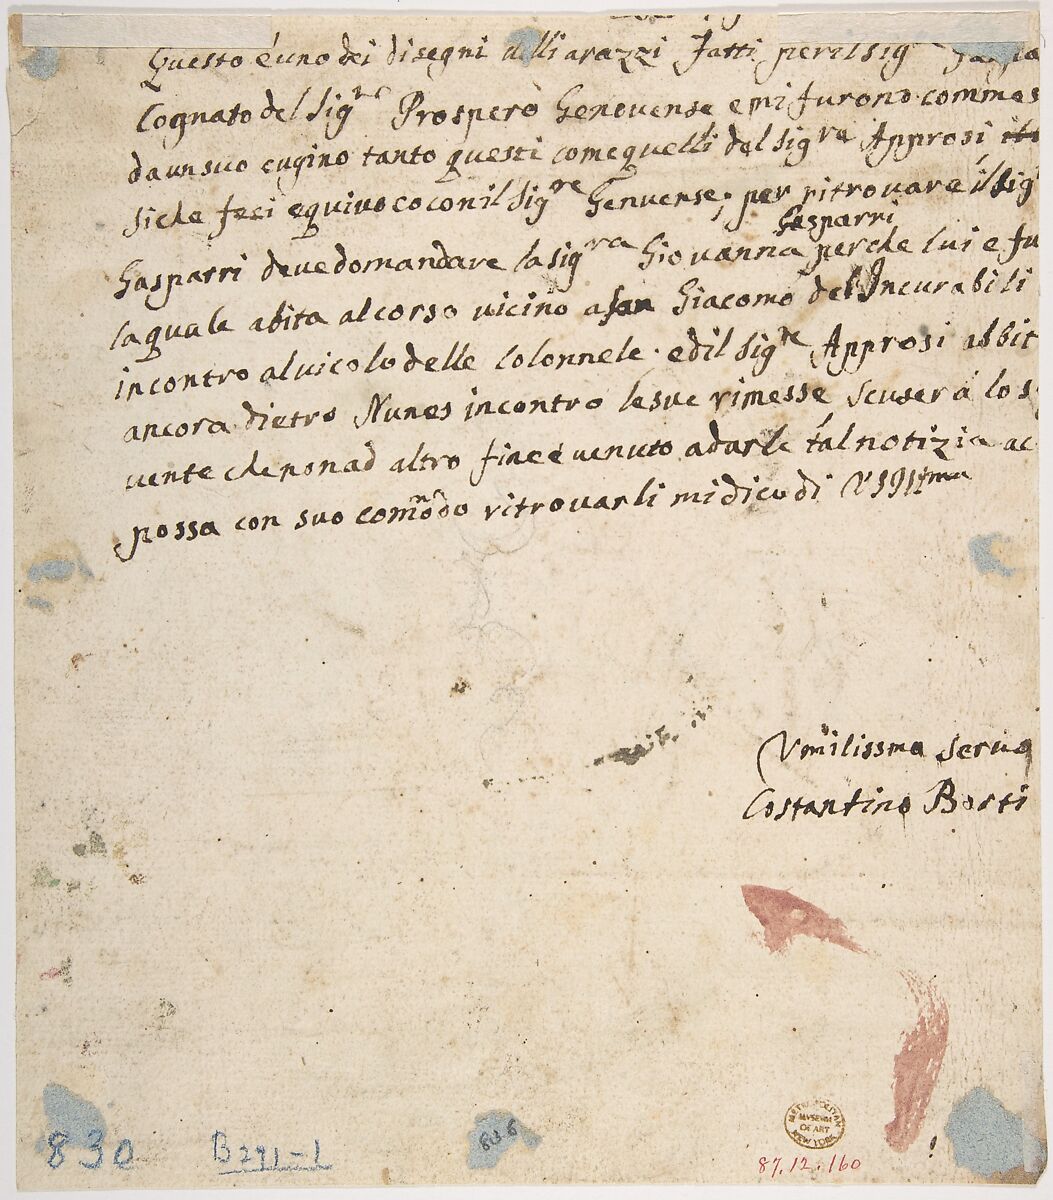 Questo é uno dei disegni delli arazzi fatti per il sig
Cognato del Sig.re Prospero Genovense e mi furono commes
da un suo cugino tanto questi come quelli del Sig.re Approsi
siche feci equivoco con il Sig.re Genvense; per ritrovare il Sig
Gasparri
Gasparri deve domandare la Sig.ra Giovanna perche lui e fu
la quale abita al corso vicino a San Giacomo del Incurabili
incontro al vicolo delle Colonnele. ed il Sig.re Approsi abbit
ancora dietro Nunes incontro le sue rimesse scuserá lo s
vente che non ad altro fine é venuto a darle tal notizia ac
possa con suo commodo ritrovarli mi dico di VS Illma
Vmilissmo Servo
Costantino Borti
830
B291-1
806
METROPOLITAN
MVSEVM
OF ART
NEW YORK
87.12.160